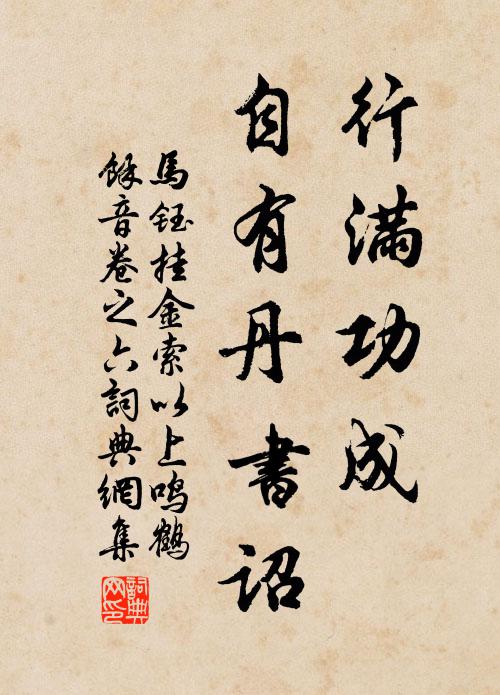 行滿功成
自有丹書詔
馬鈺挂金索以上鳴鶴
餘音卷之六詞典網集
詞典網印